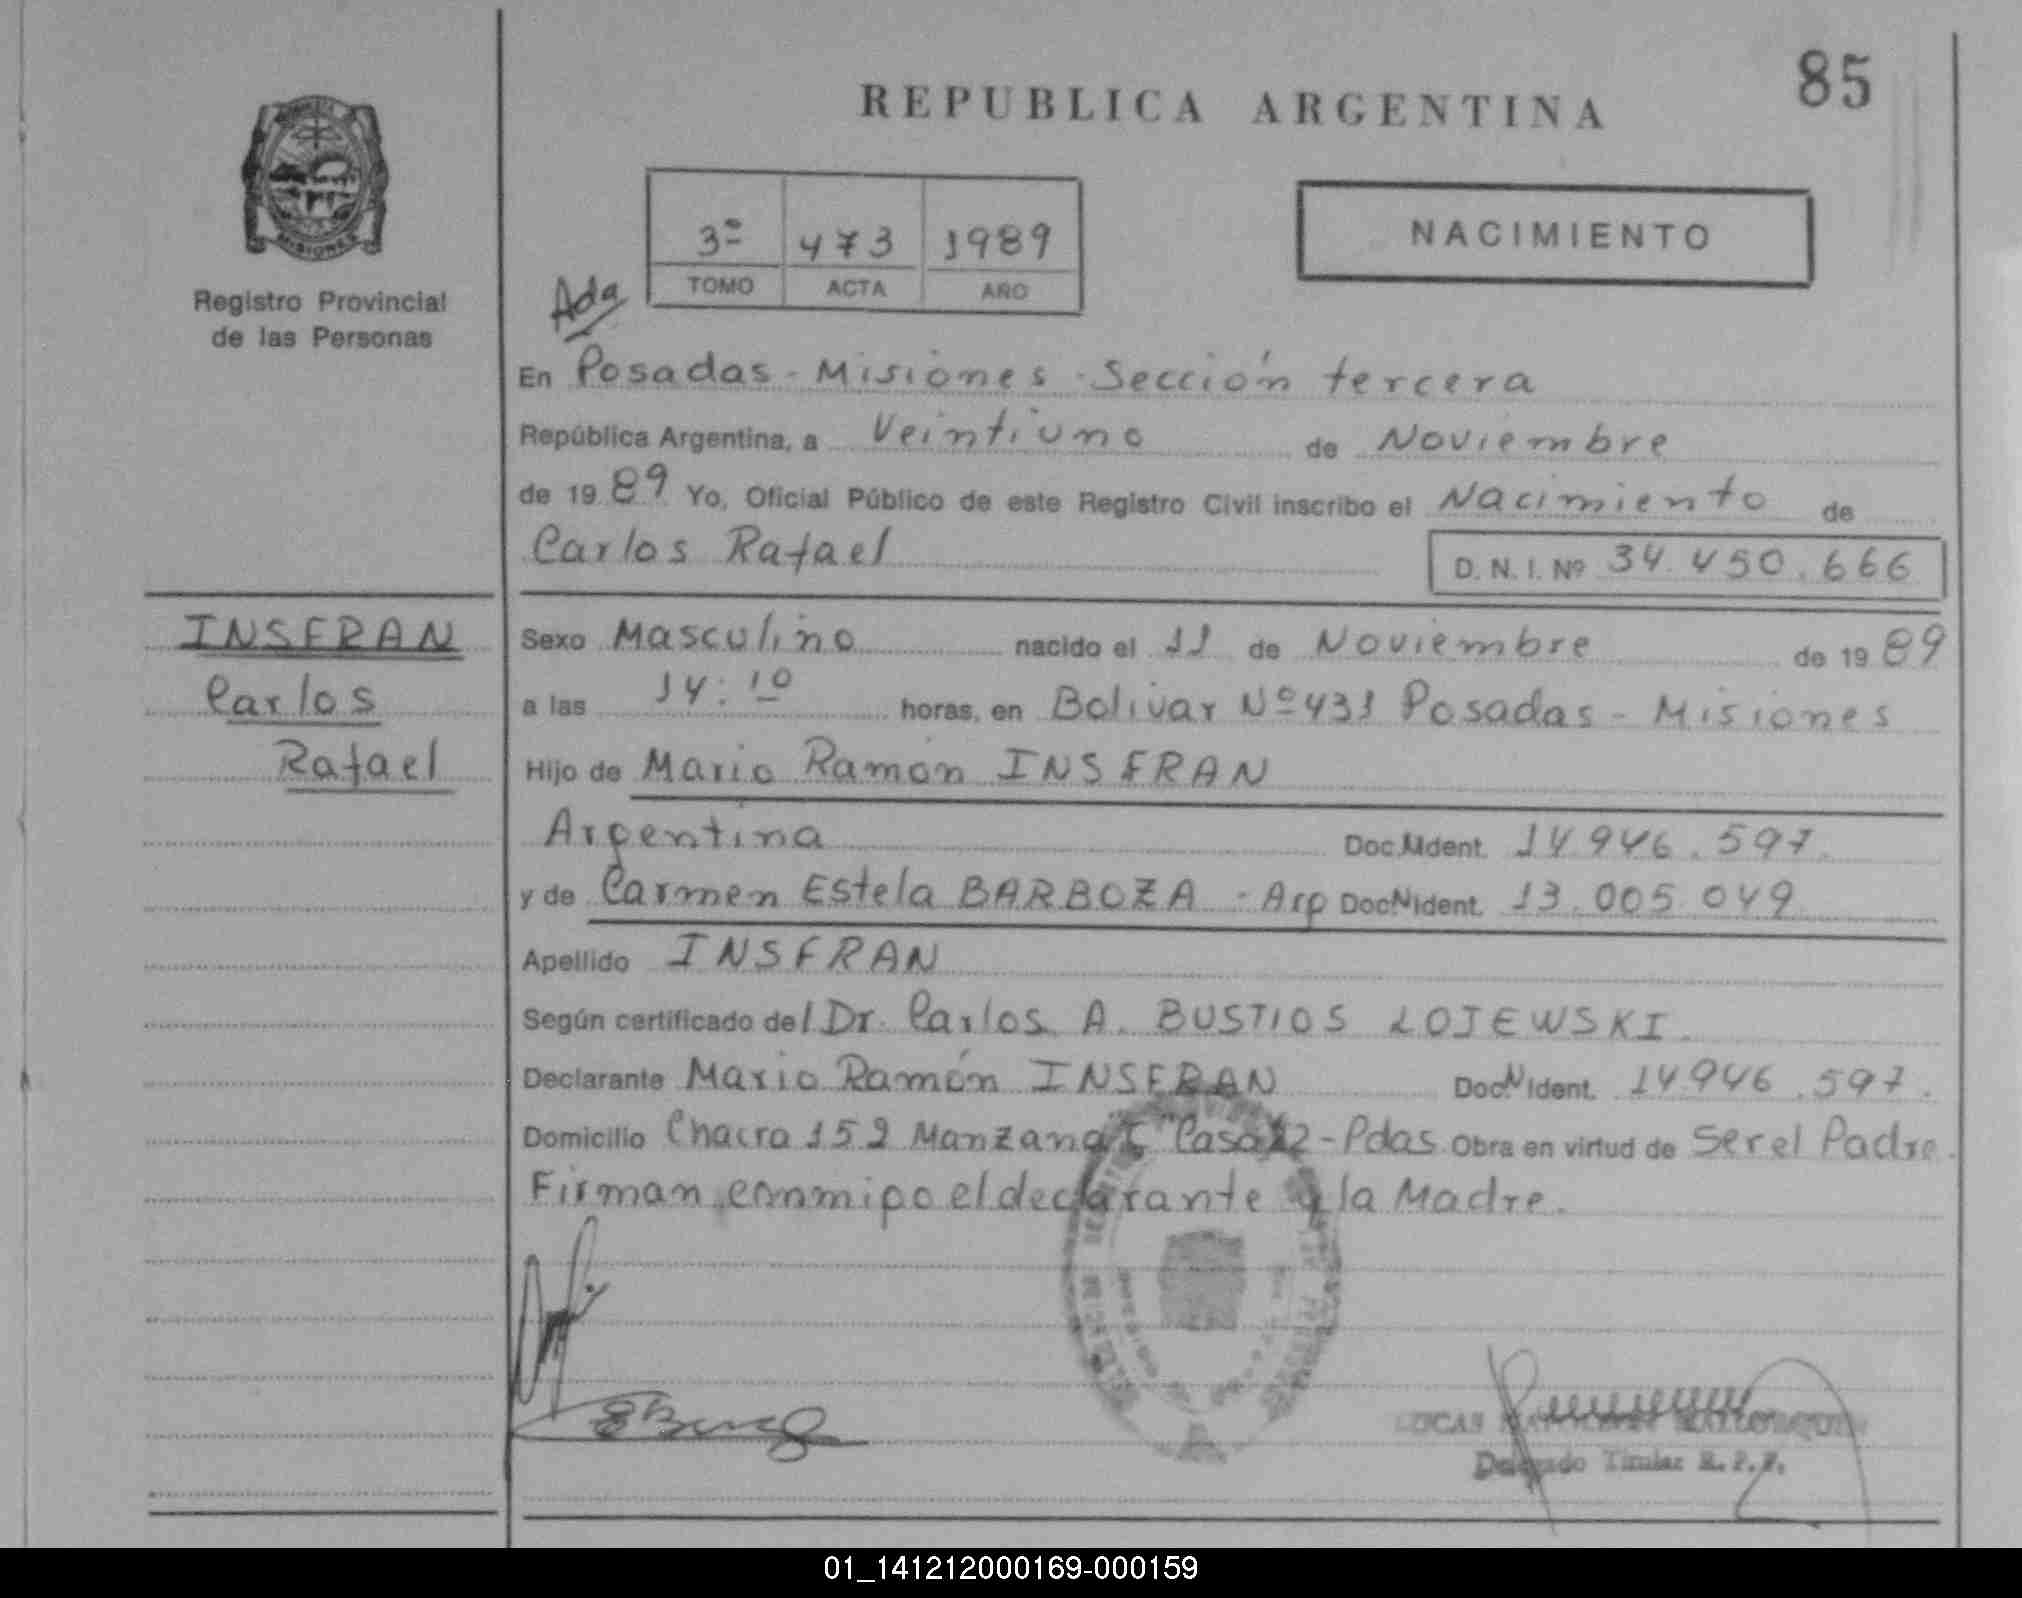 85
REPUBLICA ARGENTINA
MISIONES
Registro Provincial
de las Personas
3º 473 1989
TOMO ACTA AÑO
NACIMIENTO
Ada
En Posadas - Misiones - Sección tercera
República Argentina, a Veintiuno de Noviembre
de 1989 Yo, Oficial Público de este Registro Civil inscribo el Nacimiento de
Carlos Rafael
D. N. I. Nº 34.450.666
INSFRAN
Carlos
Rafael
Sexo Masculino nacido el 11 de Noviembre de 1989
a las 14:10 horas, en Bolivar Nº 431 Posadas - Misiones
Hijo de Mario Ramón INSFRAN
Argentina Doc. Ident. 14.946.597.
y de Carmen Estela BARBOZA - Arg Doc. Ident. 13.005.049
Apellido INSFRAN
Según certificado del Dr. Carlos A. BUSTIOS LOJEWSKI.
Declarante Mario Ramón INSFRAN Doc. Ident. 14946.597.
Domicilio Chacra 152 Manzana Casa 12 - Pdas Obra en virtud de Ser el Padre.
Firman conmigo el declarante y la Madre.
LUCAS
Delegado Titular R. P. P.
01_141212000169-000159